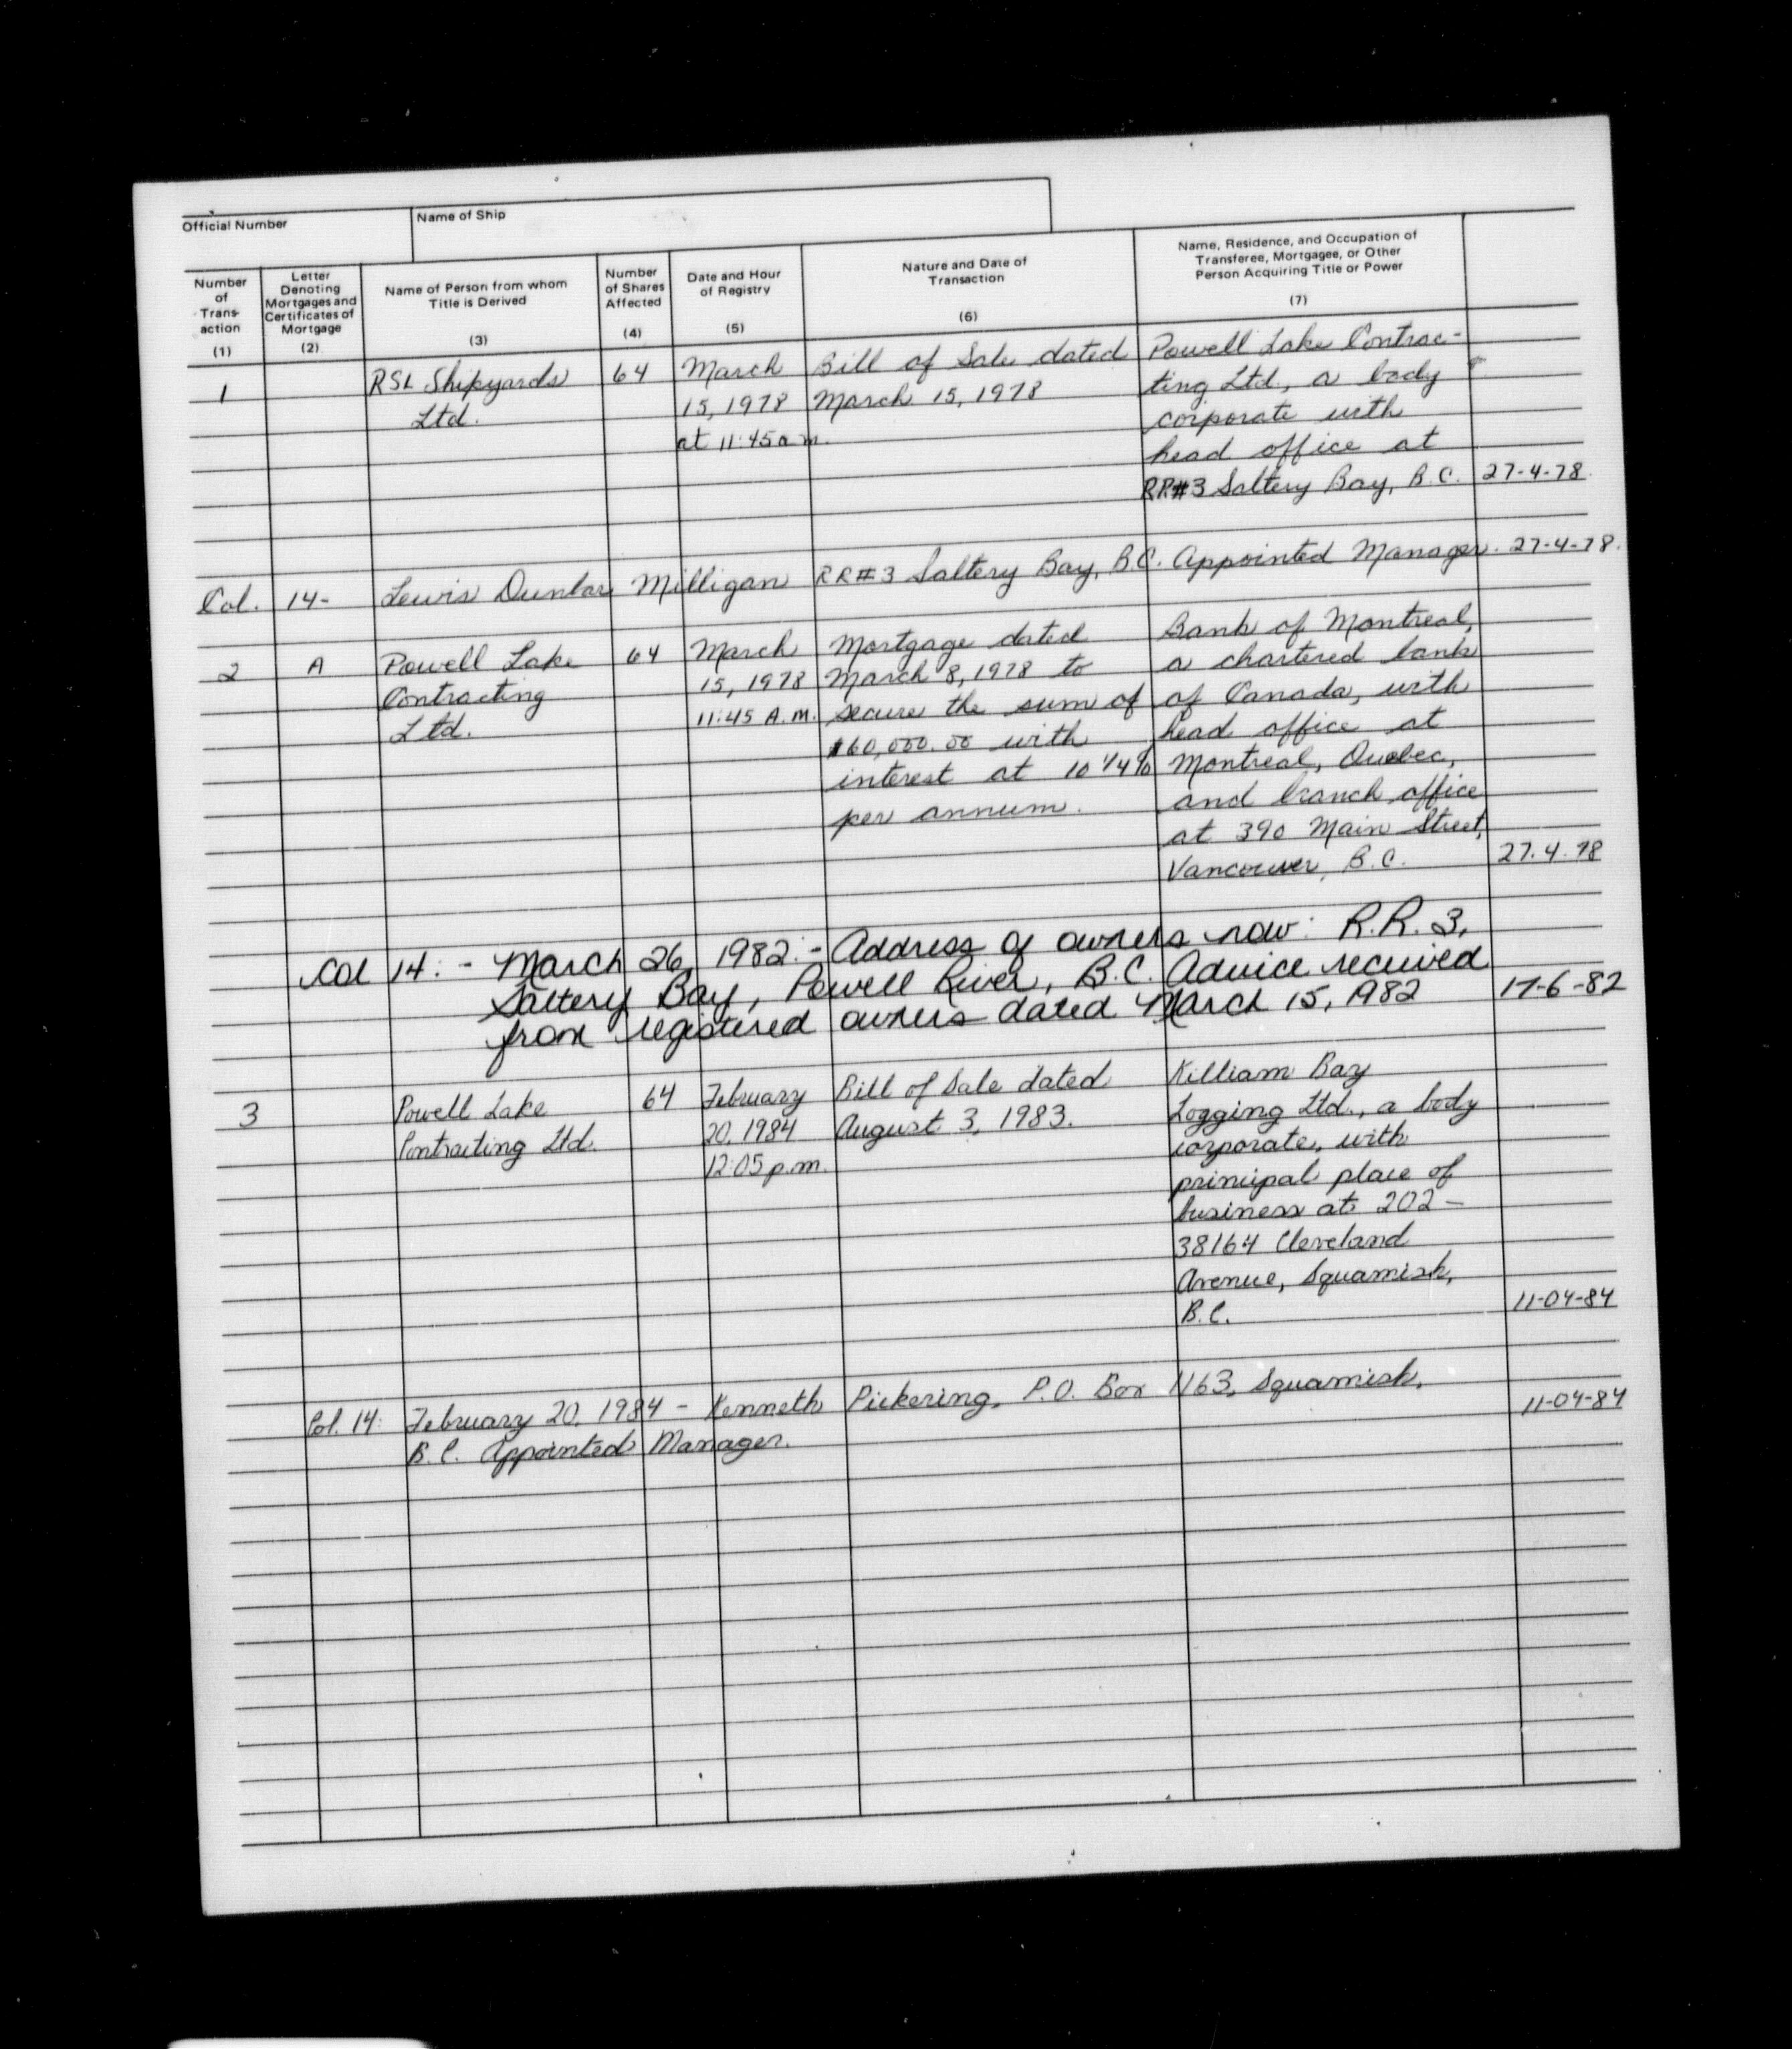 Official Number
Name of Ship
Number of Transaction (1)
Letter Denoting Mortgages and Certificates of Mortgage (2)
Name of Person from whom Title is Derived (3)
Number of Shares Affected (4)
Date and Hour of Registry (5)
Nature and Date of Transaction (6)
Name, Residence, and Occupation of Transferee, Mortgagee, or Other Person Acquiring Title or Power (7)
1
RSL Shipyards
Ltd.
64
March
15, 1978
at 11:45 a.m.
Bill of Sale dated
March 15, 1978
Powell Lake Contrac-
ting Ltd., a body
corporate with
head office at
RR#3 Saltery Bay, B.C.
27-4-78.
Col. 14- Lewis Dunbar Milligan RR#3 Saltery Bay, B.C. Appointed Manager. 27-4-78.
2
A
Powell Lake
Contracting
Ltd.
64
March
15, 1978
11:45 A.M.
Mortgage dated
March 8, 1978 to
secure the sum of
$60,000.00 with
interest at 10 1/4%
per annum.
Bank of Montreal,
a chartered bank
of Canada, with
head office at
Montreal, Quebec,
and branch office
at 390 Main Street,
Vancouver, B.C.
27.4.78
Col 14:- March 26, 1982:- Address of owners now: R.R. 3,
Saltery Bay, Powell River, B.C. Advice received
from registered owners dated March 15, 1982
17-6-82
3
Powell Lake
Contracting Ltd.
64
February
20, 1984
12:05 p.m.
Bill of Sale dated
August 3, 1983.
Killiam Bay
Logging Ltd., a body
corporate, with
principal place of
business at 202-
38164 Cleveland
Avenue, Squamish,
B.C.
11-04-84
Col. 14: February 20, 1984 - Kenneth Pickering, P.O. Box 1163, Squamish,
B.C. Appointed Manager.
11-04-84